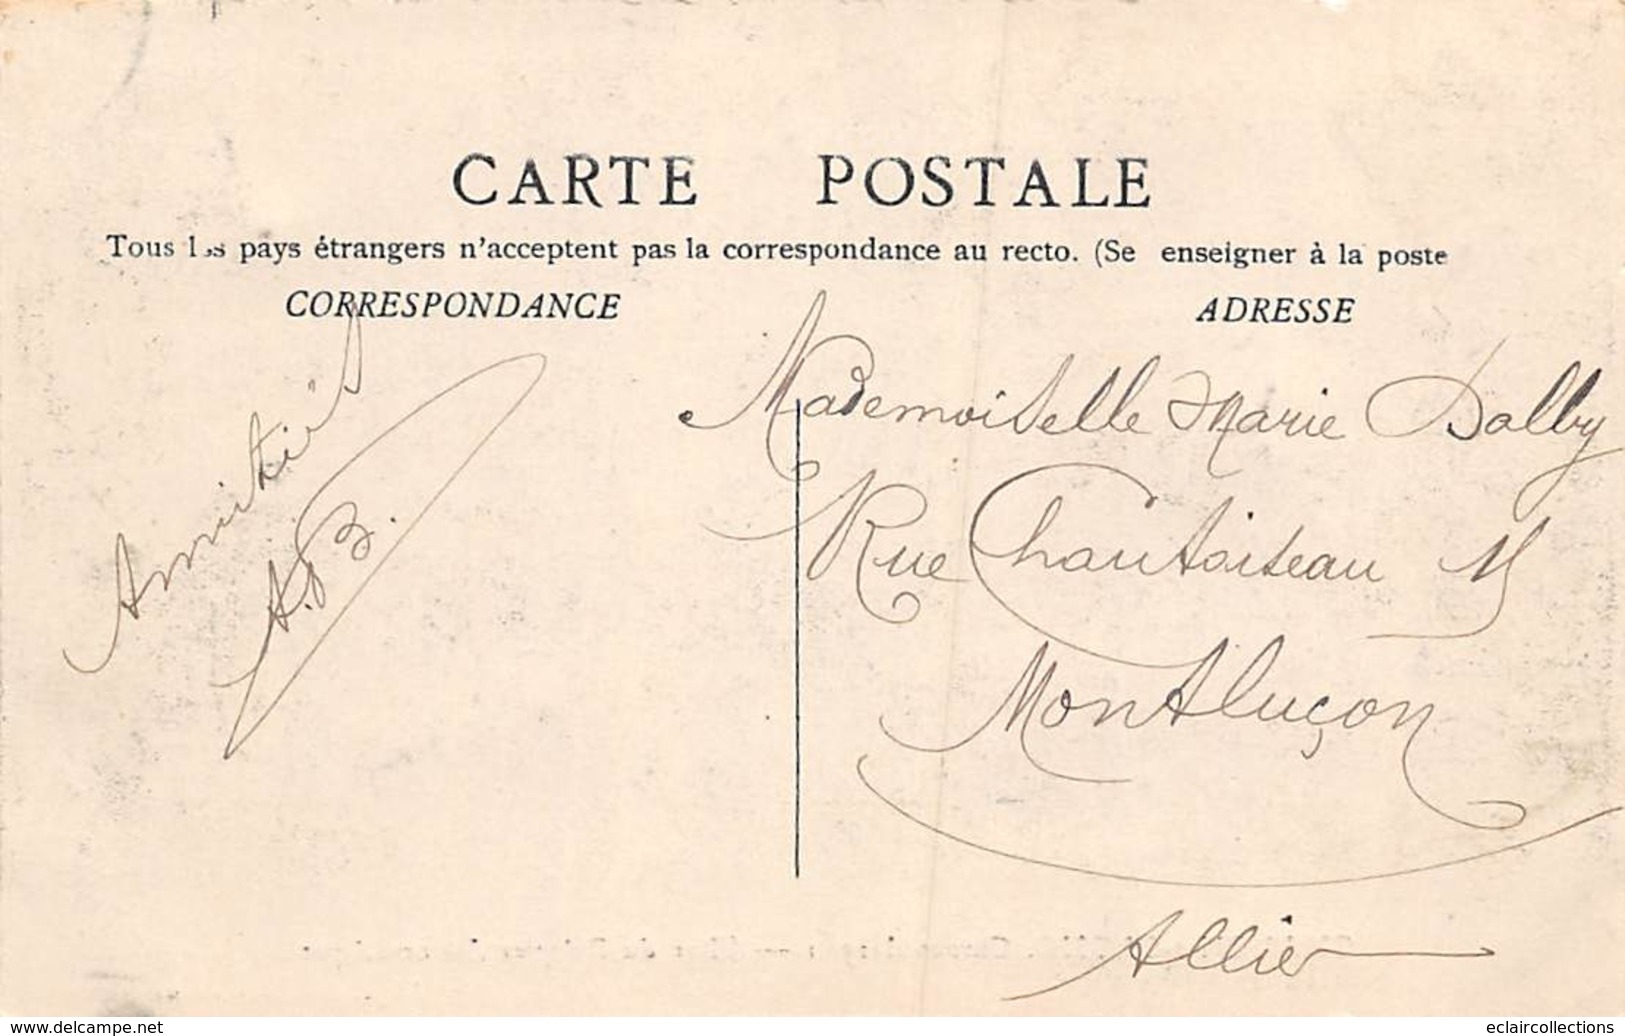 CARTE POSTALE
Tous les pays étrangers n'acceptent pas la correspondance au recto. (Se enseigner à la poste
CORRESPONDANCE
ADRESSE
Amitiés
A.B.
Mademoiselle Marie Dalby
Rue Chantoiseau
Montluçon
Allier
www.delcampe.net
eclaircollections